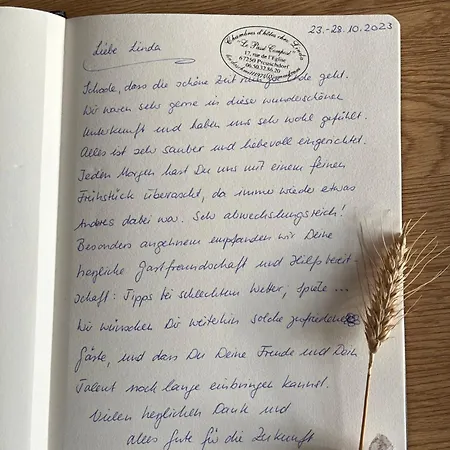 23.-28.10.2023
Chambres d'hôtes chez Linda
"Le Pied Campost"
17, rue de l'Eglise
67250 Preuschdorf
06.50.32.86.20
Liebe Linda
Schade, dass die schöne Zeit nun zu Ende geht.
Wir waren sehr gerne in diese wunderschönen
Unterkunft und haben uns sehr wohl gefühlt.
Alles ist sehr sauber und liebevoll eingerichtet.
Jeden Morgen hast Du uns mit einem feinen
Frühstück überrascht, da immer wieder etwas
Anderes dabei war. Sehr abwechslungsreich!
Besonders angenehm empfanden wir Deine
herzliche Gastfreundschaft und Hilfsbereit-
schaft: Tipps bei schlechtem Wetter, Spiele ...
Wir wünschen Dir weiterhin solche zufriedene
Gäste, und dass Du Deine Freude und Dein
Talent noch lange einbringen kannst.
Vielen herzlichen Dank und
alles Gute für die Zukunft